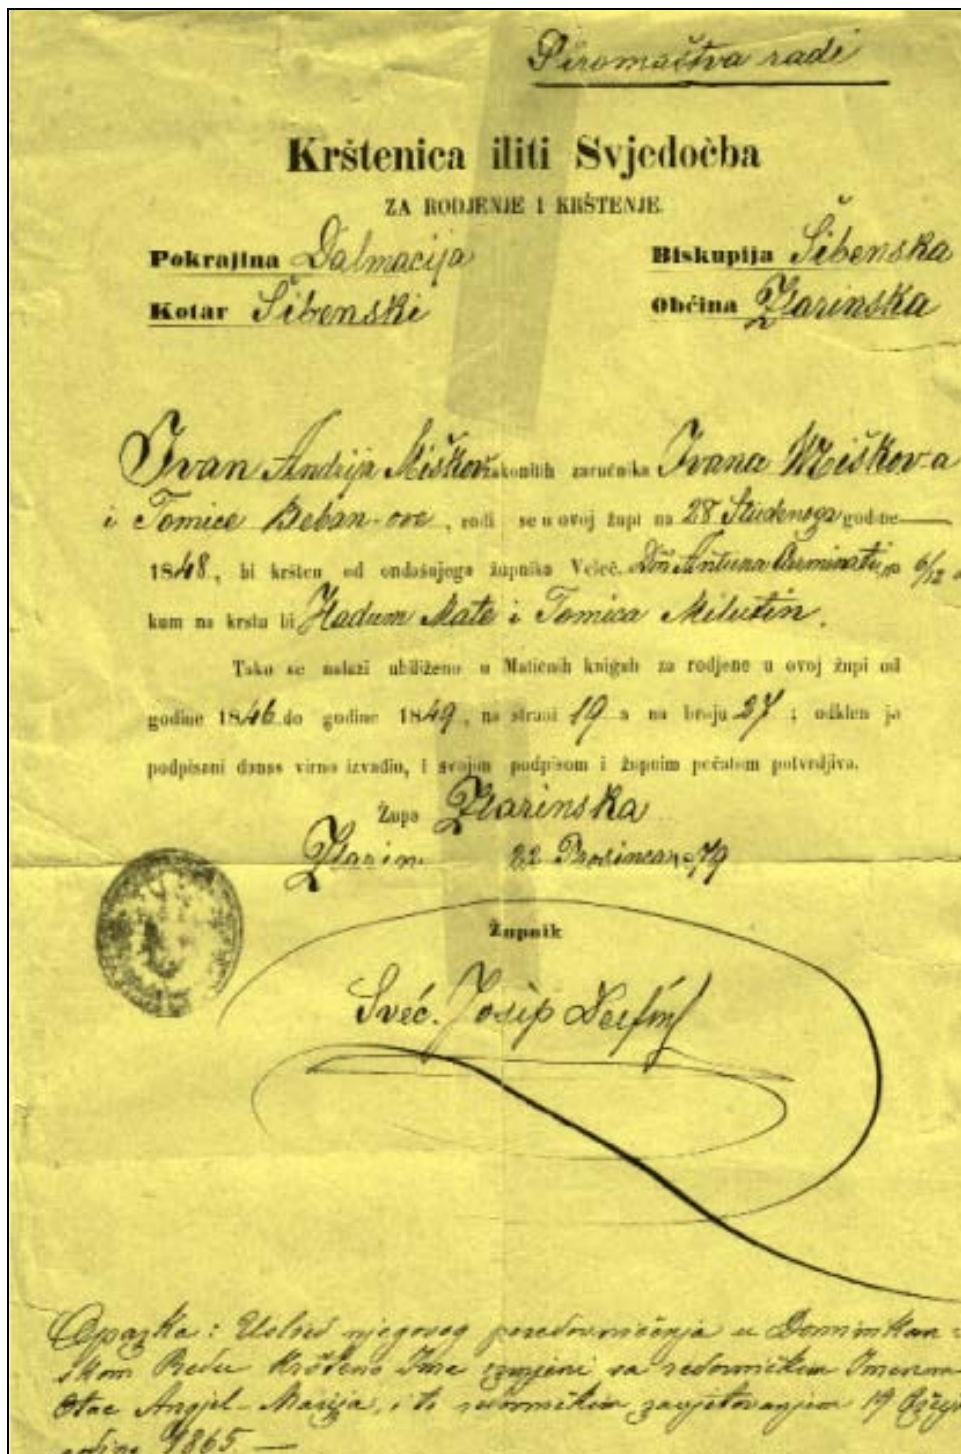 Siromaštva radi
Krštenica iliti Svjedočba
ZA RODJENJE I KRŠTENJE.
Pokrajina Dalmacija Biskupija Šibenska
Kotar Šibenski Občina Zlarinska
Ivan Andrija Miškov zakonitih zaručnika Ivana Miškov-a
i Tomice Beban-ove, rodi se u ovoj župi na 28 Studenoga godine
1848, bi kršten od ondašnjega župnika Veleč. Dn Antuna 6/12
kum na krstu bi Mate i Tomica Milutin.
Tako se nalazi ubilježeno u Matičnih knigah za rodjene u ovoj župi od
godine 1846 do godine 1849, na strani 19 a na broju 27; odklen ja
podpisani danas virno izvadio, i svojim podpisom i župnim pečatom potvrdjiva.
Župa Zlarinska
Zlarin 22 Prosinca 79
Župnik
Sveć. Josip
Opazka: Uslied njegovog u Dominikan-
skom Redu Kršteno Ime izmjeni sa redovničkim Imenom
Otac Angjel-Marija, i to redovničkim zavjetovanjem 19
godine 1865.—